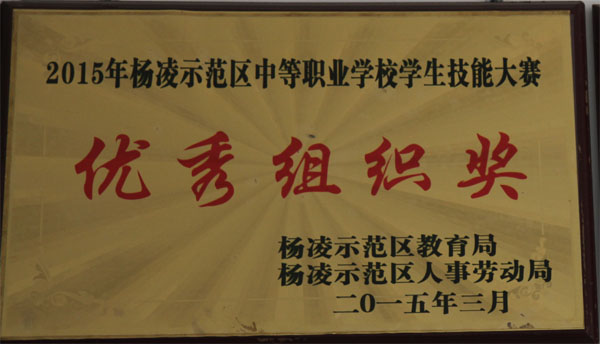 2015年杨凌示范区中等职业学校学生技能大赛
优秀组织奖
杨凌示范区教育局
杨凌示范区人事劳动局
二〇一五年三月